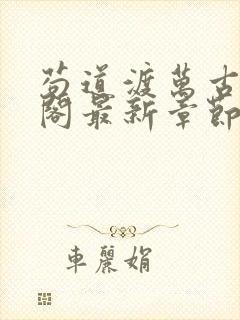 苟道渡萬古
閣最新章節
車麗娟